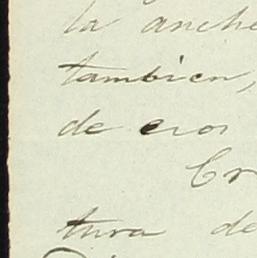 la anche
tambien,
de eros
Cr
tura de